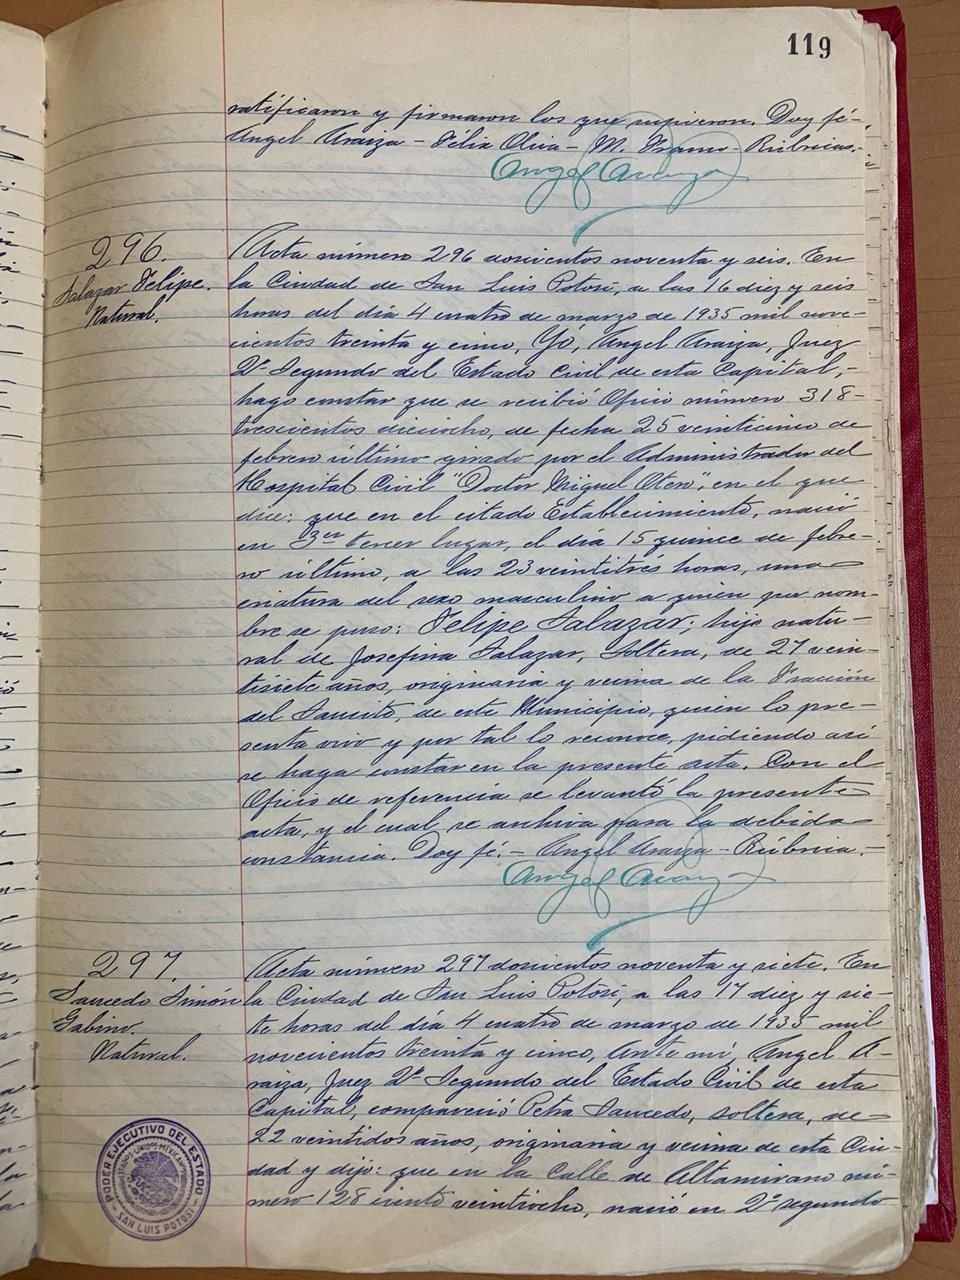 119
ratificaron y firmaron los que supieron. Doy fé-
Angel Araiza - Félix Oliva - M. - Rúbricas.-
Angel Araiza
296.
Salazar Felipe.
Natural.
Acta número 296 doscientos noventa y seis. En
la Ciudad de San Luis Potosí, a las 16 diez y seis
horas del día 4 cuatro de marzo de 1935 mil nove-
cientos treinta y cinco, Yó, Angel Araiza, Juez
2º Segundo del Estado Civil de esta Capital,-
hago constar que se recibió Oficio número 318-
trescientos dieciocho, de fecha 25 veinticinco de
febrero último girado por el Administrador del
Hospital Civil "Doctor Miguel Otero", en el que
dice: que en el citado Establecimiento, nació
en 3er tercer lugar, el día 15 quince de febre-
ro último, a las 23 veintitrés horas, una
criatura del sexo masculino a quien por nom-
bre se puso: Felipe Salazar; hijo natu-
ral de Josefina Salazar, soltera, de 27 vein-
tisiete años, originaria y vecina de la Fracción
del Saucito, de este Municipio, quien lo pre-
senta vivo y por tal lo reconoce, pidiendo así
se haga constar en la presente acta. Con el
Oficio de referencia se levantó la presente
acta, y el cual se archiva para la debida
constancia. Doy fé.- Angel Araiza - Rúbrica.-
Angel Araiza
297.
Saucedo Simón
Gabino.
Natural.
Acta número 297 doscientos noventa y siete. En
la Ciudad de San Luis Potosí, a las 17 diez y sie-
te horas del día 4 cuatro de marzo de 1935 mil
novecientos treinta y cinco, Ante mí, Angel A-
raiza, Juez 2º Segundo del Estado Civil de esta
Capital, compareció Petra Saucedo, soltera, de
22 veintidos años, originaria y vecina de esta Ciu-
dad y dijo: que en la Calle de Altamirano nú-
mero 128 ciento veintiocho, nació en 2º segundo
PODER EJECUTIVO DEL ESTADO
ESTADOS UNIDOS MEXICANOS
SAN LUIS POTOSI